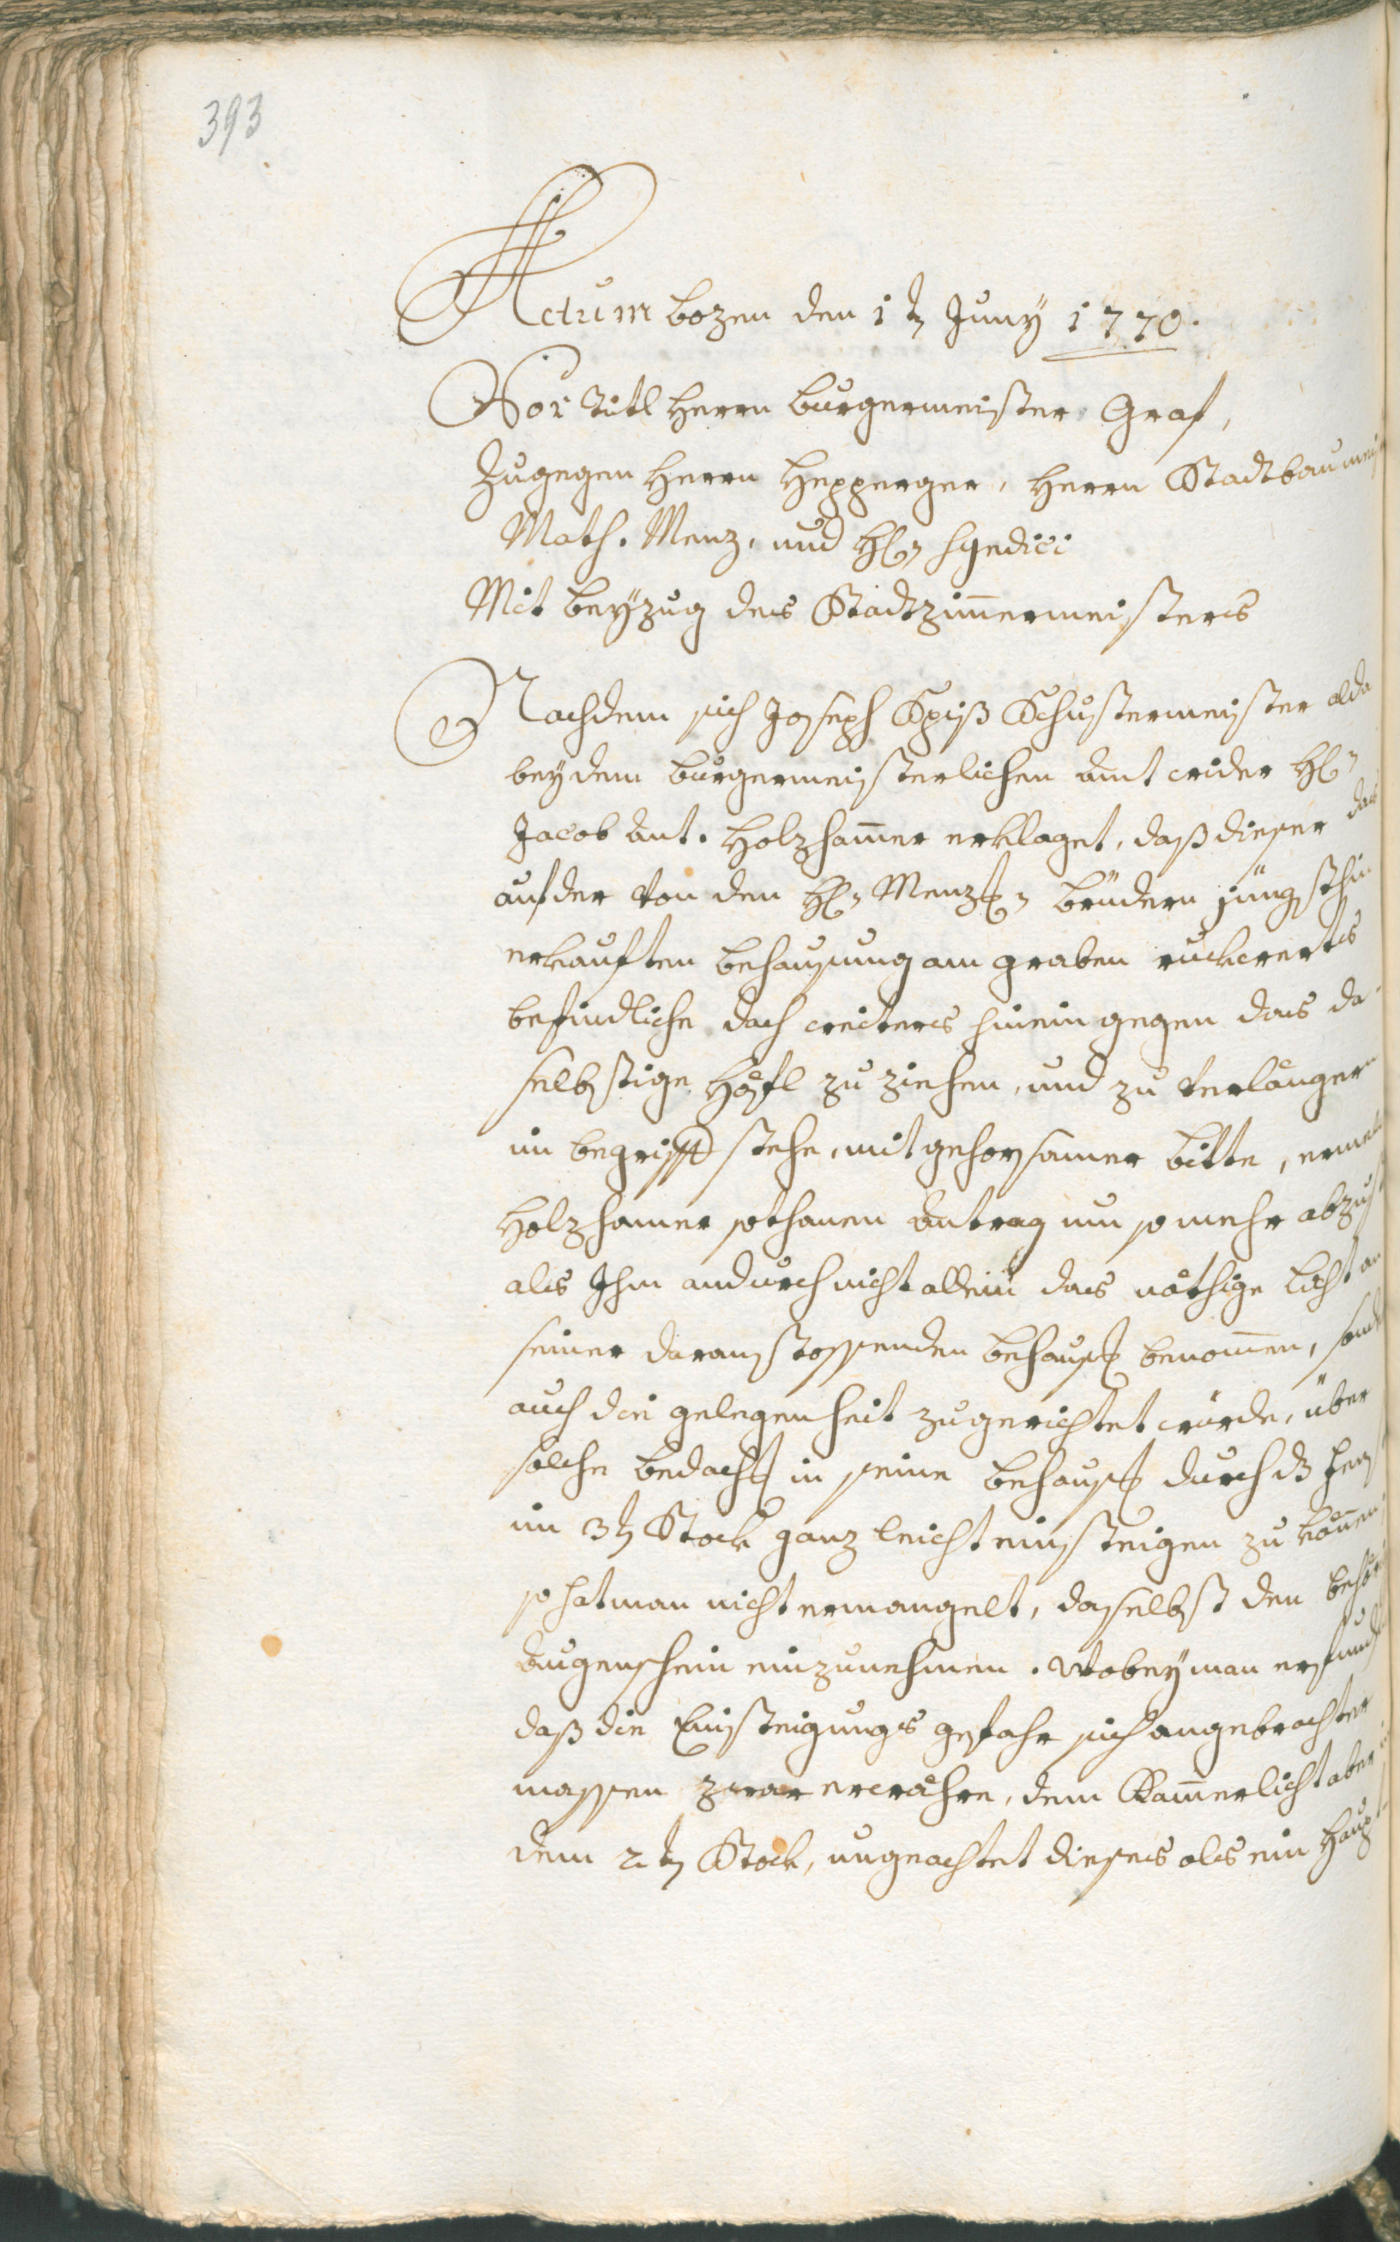 393
Actum bozen den 1tn Juny 1770.
Vor Titl Herrn burgermeister Graf,
Zugegen Herrn Hepperger, Herrn Stadtbaumei
Math. Menz, und Hln Syndici
Mit beyzug des Stadtzim̄ermeisters
Nachdem sich Joseph Spiß Schustermeister alda
bey dem burgermeisterlichen amt wider Hln
Jacob Ant. Holzham̄er erklaget, daß dieser das
auf der von den Hln Menz brüdern jüngsthin
erkauften behausung am graben ruckwerts
befindliche dach weiters hinein gegen das da-
selbstige Höfl zu ziehen, und zu verlänger
im begriff stehe, mit gehorsamer bitte,
Holzhamer sothanen antrag um so mehr
als Ihm andurch nicht allein das nöthige licht an
seiner daranstossenden behaus benom̄en,
auch die gelegenheit zugerichtet würde, über
solche bedach in seine behaus durch
im 3tn Stock ganz leicht einsteigen zu kön̄en
so hat man nicht ermangelt, daselbst den
augenschein einzunehmen. Wobey man
daß die Einsteigungs gefahr sich angebrachter
massen zwar erwähre, dem Kam̄erlicht aber
dem 2tn Stock, ungeachtet dieses als ein Haupt